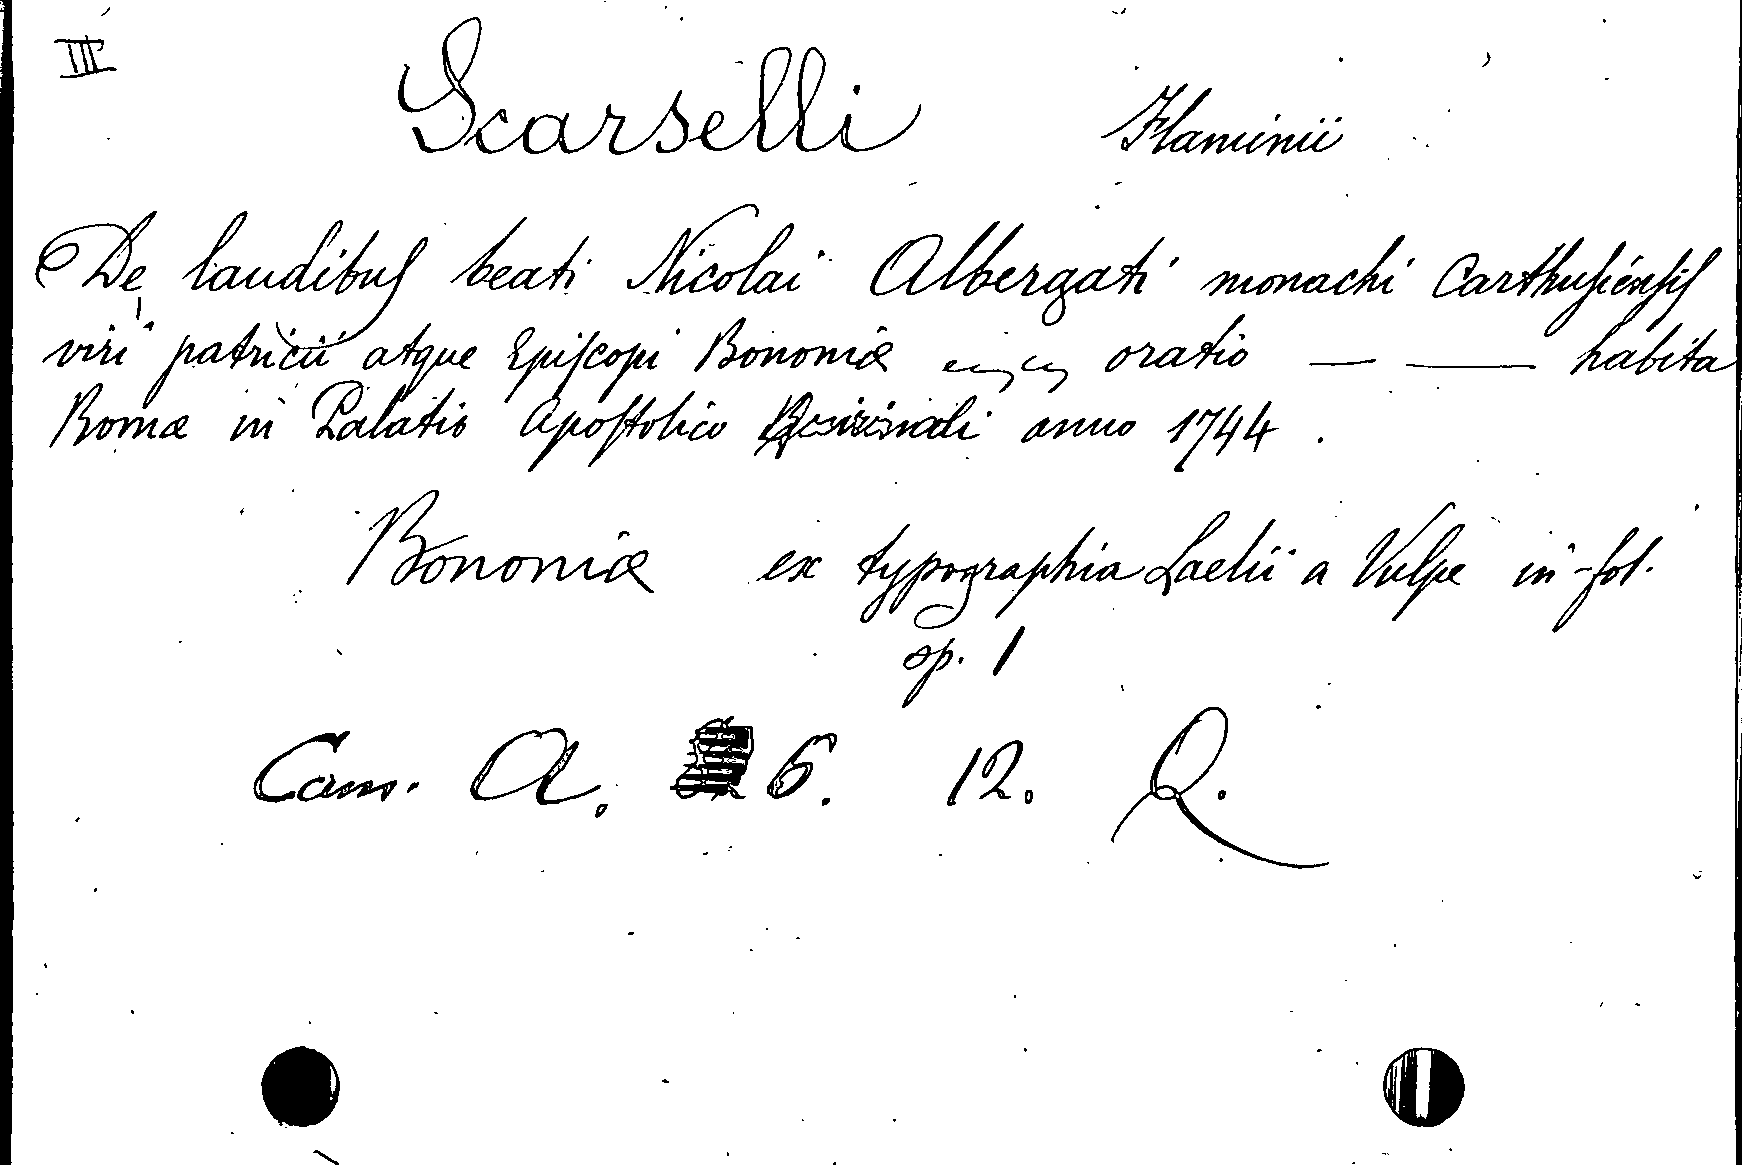 III
Scarselli Flaminii
De laudibus beati Nicolai Albergati monachi Carthusiensis
viri patricii atque Episcopi Bononiæ oratio — — habita
Romæ in Palatio Apostolico Quirinali anno 1744.
Bononiæ ex typographia Laelii a Vulpe in-fol.
op. 1
Cam. A. 6. 12. Q.